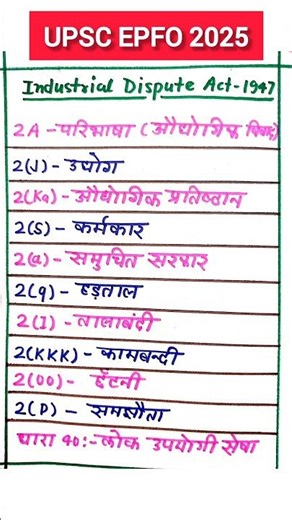 UPSC EPFO 2025
Industrial Dispute Act-1947
2A - परिभाषा (औद्योगिक विवाद)
2(J) - उद्योग
2(Ka) - औद्योगिक प्रतिष्ठान
2(S) - कर्मकार
2(a) - समुचित सरकार
2(q) - हड़ताल
2(I) - तालाबंदी
2(KKK) - कामबन्दी
2(OO) - छँटनी
2(P) - समझौता
धारा 40:- लोक उपयोगी सेवा